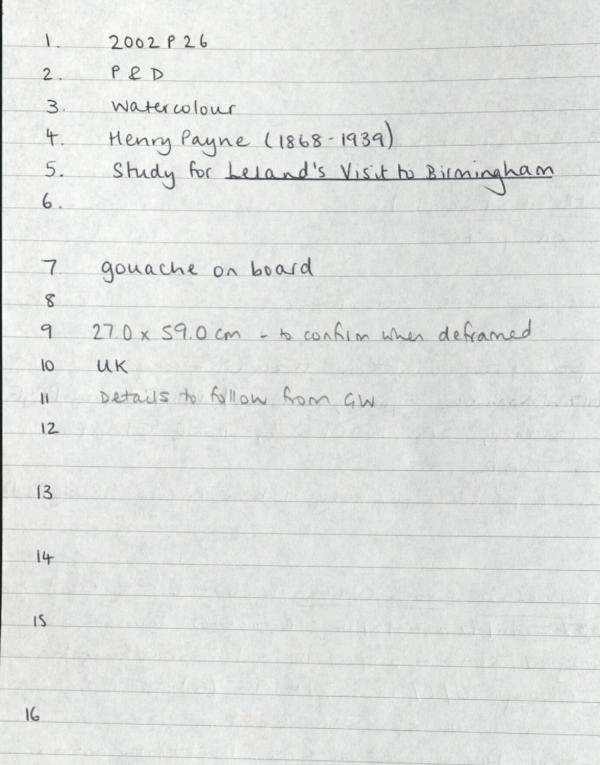 1. 2002 P 26
2. P & D
3. Watercolour
4. Henry Payne (1868-1939)
5. Study for Leland's Visit to Birmingham
6.
7 gouache on board
8
9 27.0 x 59.0 cm - to confirm when deframed
10 UK
11 Details to follow from GW
12
13
14
15
16